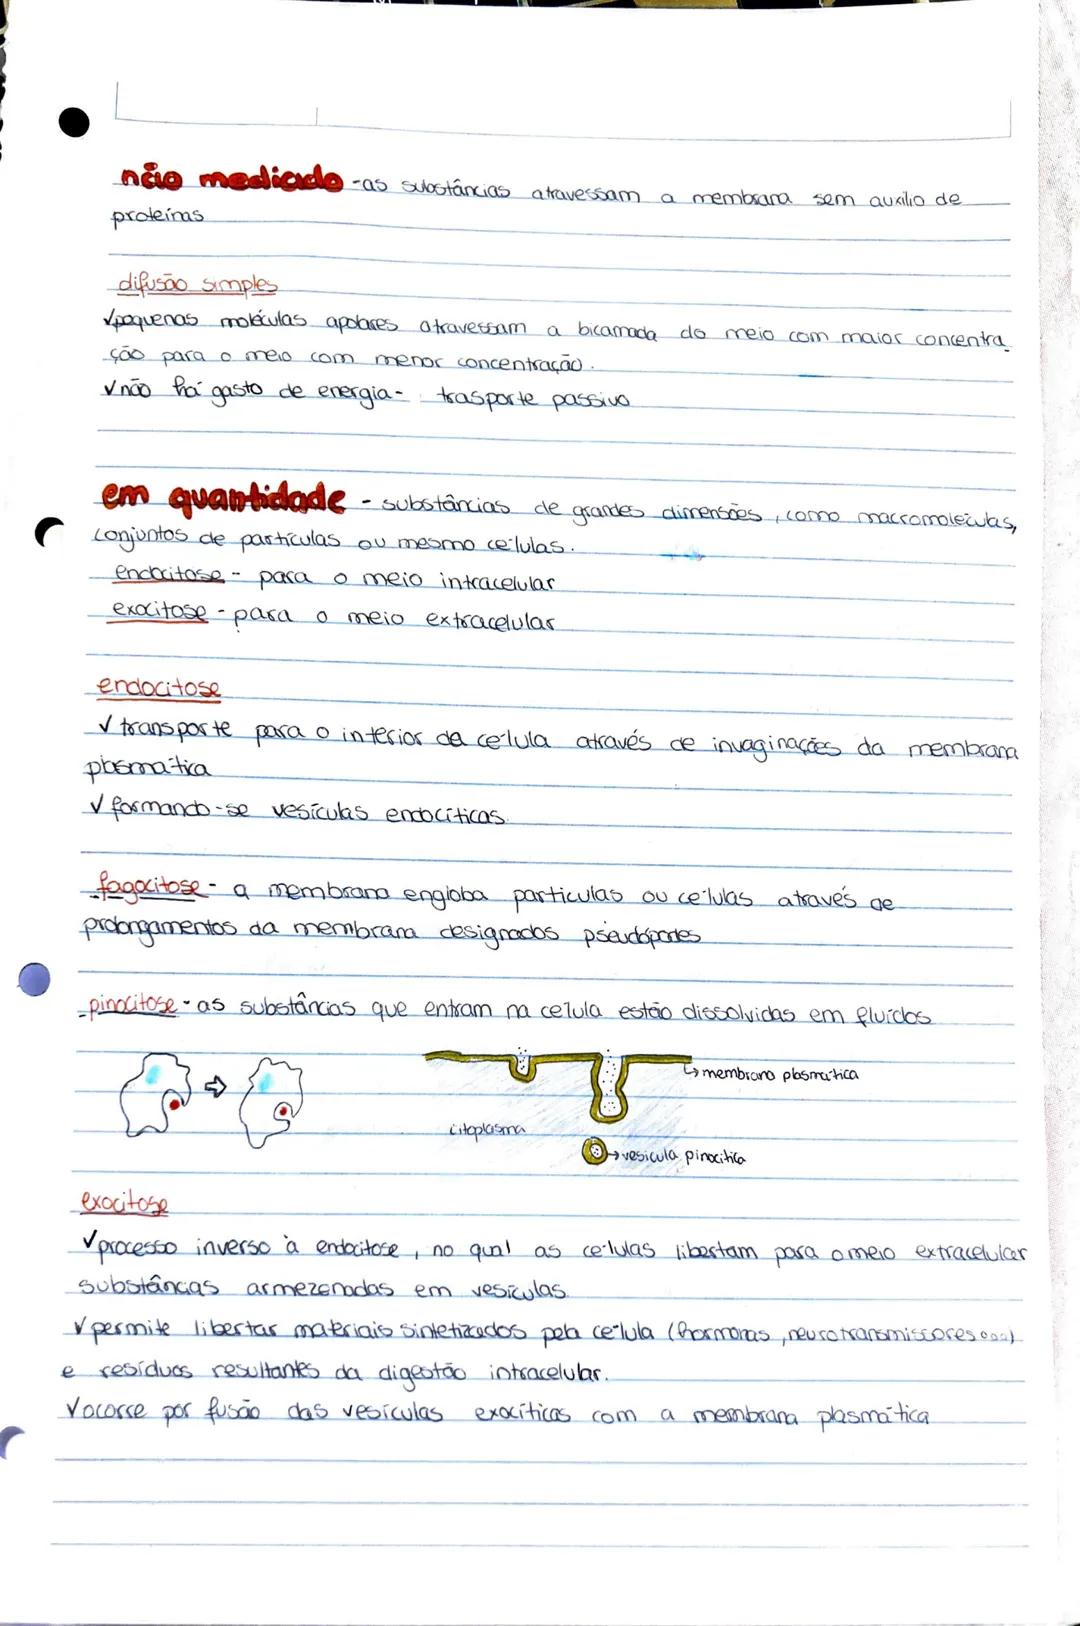 não mediado - as substâncias atravessam a membrana sem auxílio de
proteínas
difusão simples
✓pequenas moléculas apolares atravessam a bicamada do meio com maior concentra
ção para o meio com menor concentração.
✓não há gasto de energia - trasporte passivo
em quantidade - substâncias de grandes dimensões, como macromoléculas,
conjuntos de partículas ou mesmo células.
endocitose - para o meio intracelular
exocitose - para o meio extracelular
endocitose
✓transporte para o interior da célula através de invaginações da membrana
plasmática
✓formando-se vesículas endocíticas.
fagocitose - a membrana engloba partículas ou células através de
prolongamentos da membrana designados pseudópodes
pinocitose - as substâncias que entram na célula estão dissolvidas em fluídos
membrana plasmática
citoplasma
vesícula pinocítica
exocitose
✓processo inverso à endocitose, no qual as células libertam para o meio extracelular
substâncias armezenadas em vesículas.
✓permite libertar materiais sintetizados pela célula (hormonas, neurotransmissores...)
e resíduos resultantes da digestão intracelular.
✓ocorre por fusão das vesículas exocíticas com a membrana plasmática